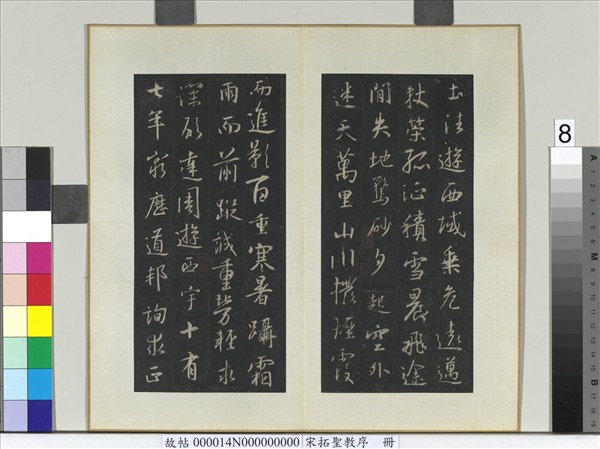 土往遊西域乘危遠邁
杖策孤征積雪晨飛途
間失地驚砂夕起空外
迷天萬里山川撥煙霞
而進影百重寒暑躡霜
雨而前蹤誠重勞輕求
深願達周遊西宇十有
七年窮歷道邦詢求正
8
A
1
2
3
4
5
6
M
8
9
10
11
12
13
14
15
B
17
18
19
故帖 000014N000000000 宋拓聖教序 冊